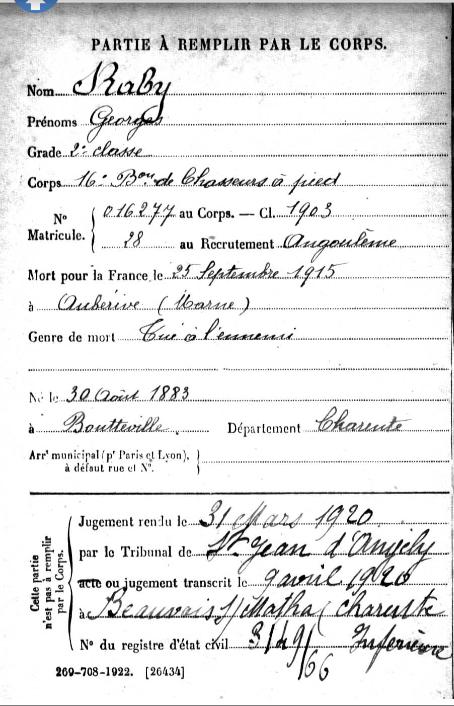 PARTIE À REMPLIR PAR LE CORPS.
Nom Raby
Prénoms Georges
Grade 2e classe
Corps 16e Bon de Chasseurs à pied
Nº Matricule. { 016277 au Corps. — Cl. 1903
28 au Recrutement Angoulème
Mort pour la France le 25 Septembre 1915
à Aubérive (Marne)
Genre de mort Tué à l'ennemi
Né le 30 Août 1883
à Boutteville. Département Charente
Arrt municipal (pr Paris et Lyon), }
à défaut rue et Nº.
Cette partie n'est pas à remplir par le Corps.
Jugement rendu le 31 Mars 1920
par le Tribunal de St Jean d'Angély
acte ou jugement transcrit le 9 avril 1920
à Beauvais s/ Matha (Charente
Nº du registre d'état civil Inférieure
269-708-1922. [26434]